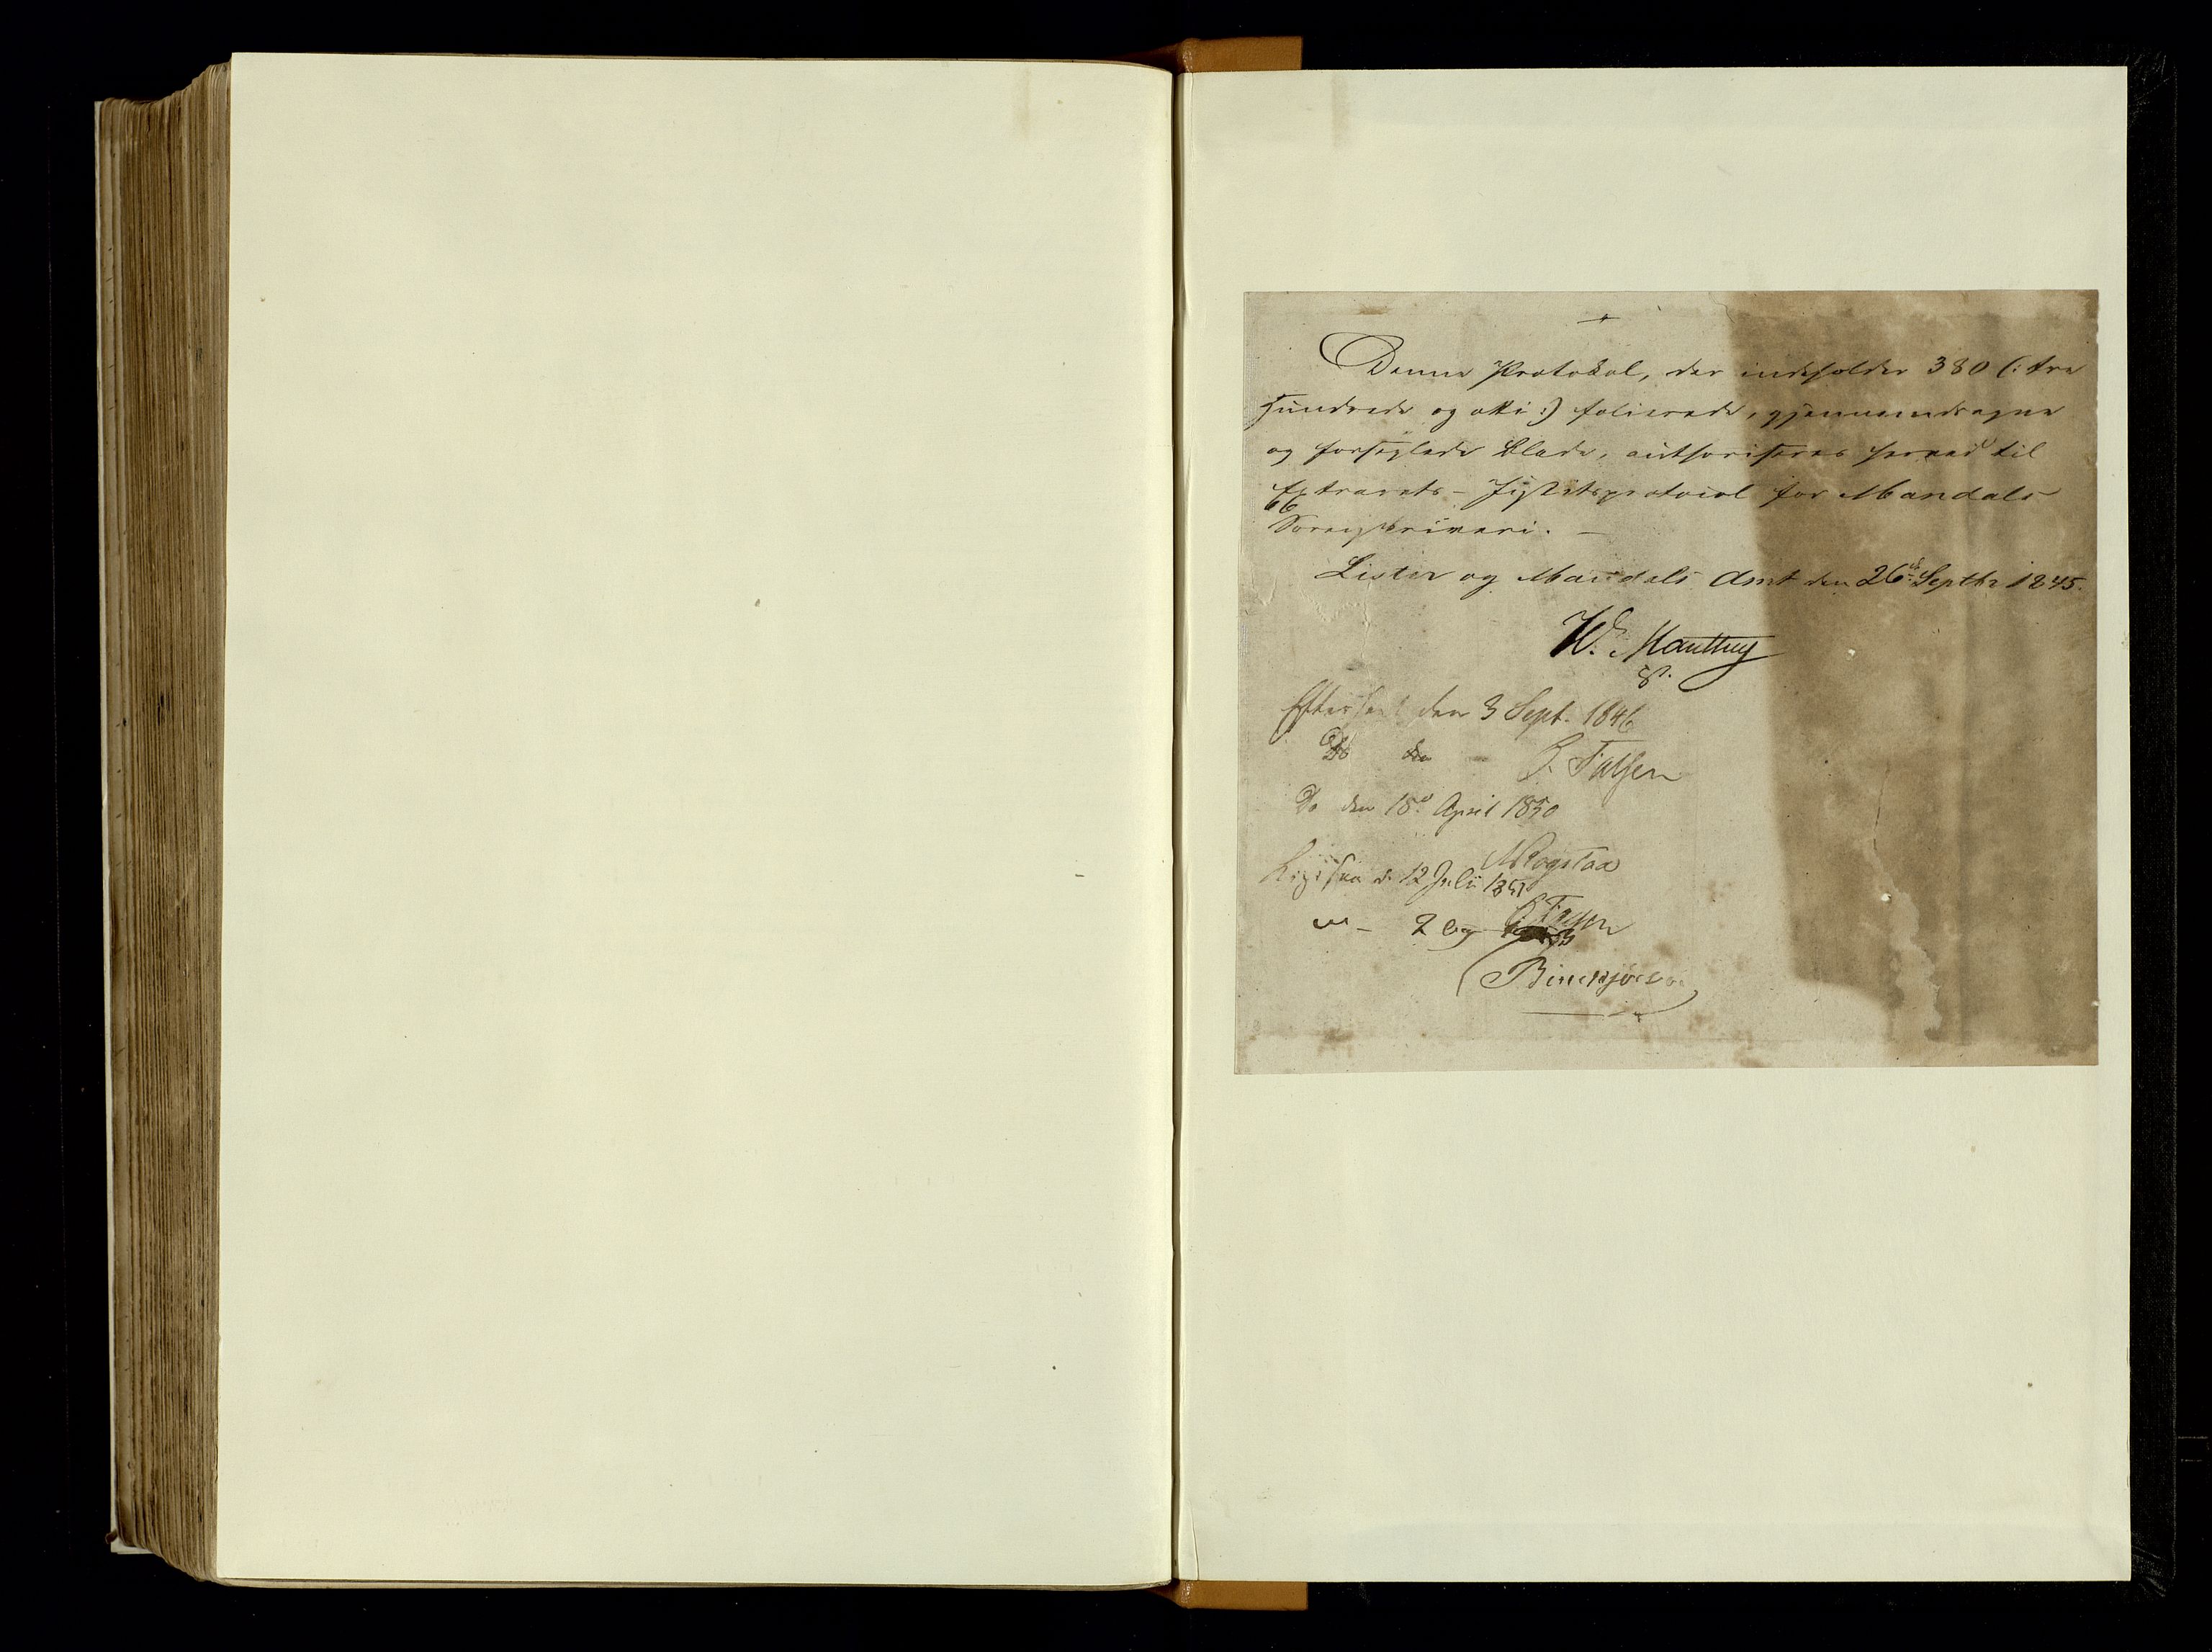 Denne Protokol, der indeholder 380 (: tre
Hundrede og otti :) folierede, gjennemdragne
og forseglede Blade, authoriseres herved til
Extrarets-Justitsprotocol for Mandals
Sorenskriveri. —
Lister og Mandals Amt den 26de Septbr 1845.
W. Manthey
Efterseet den 3 Sept. 1846
Do den — E. Falsen
Do den 18de April 1850
Rogstad
d. 12 Juli 1851
Falsen
— 2